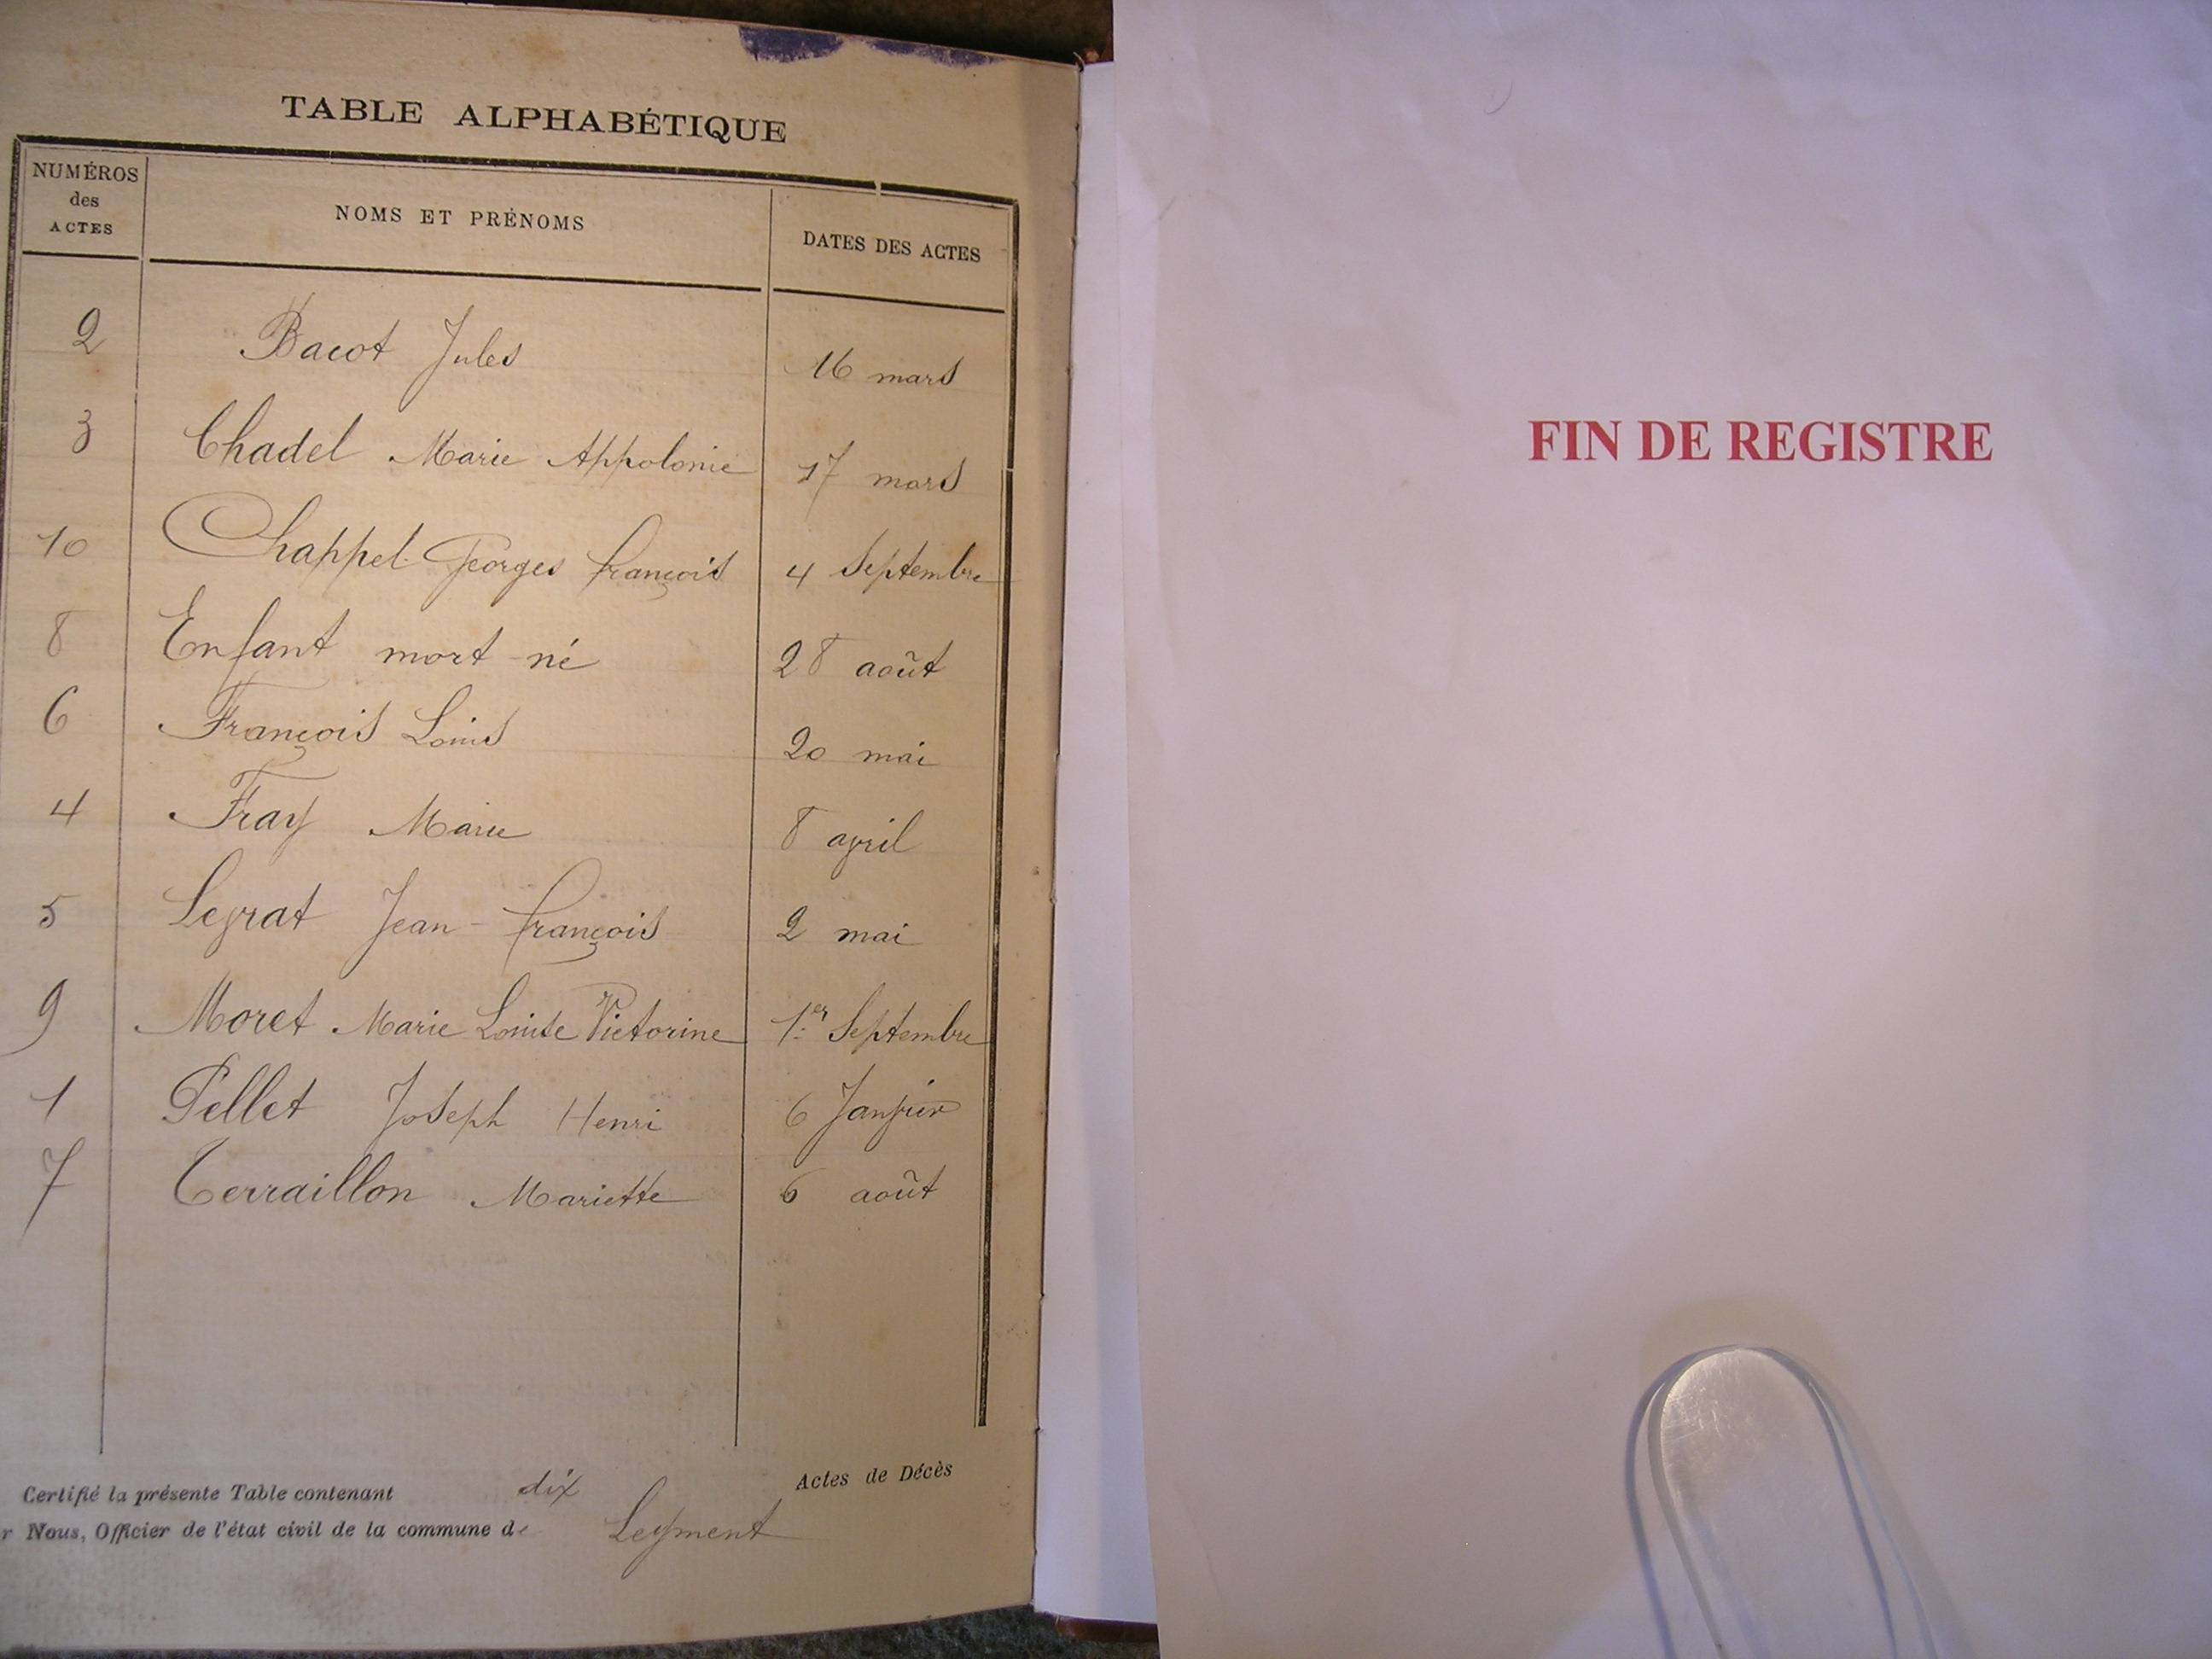 TABLE ALPHABÉTIQUE
NUMÉROS des ACTES NOMS ET PRÉNOMS DATES DES ACTES
2 Bacot Jules 16 mars
3 Chadel Marie Appolonie 17 mars
10 Chappel Georges François 4 Septembre
8 Enfant mort-né 28 août
6 François Louis 20 mai
4 Fray Marie 8 avril
5 Leyrat Jean-François 2 mai
9 Moret Marie Louise Victorine 1er Septembre
1 Pellet Joseph Henri 6 Janvier
7 Terraillon Mariette 6 août
Certifié la présente Table contenant dix Actes de Décès
r Nous, Officier de l'état civil de la commune de Leyment
FIN DE REGISTRE